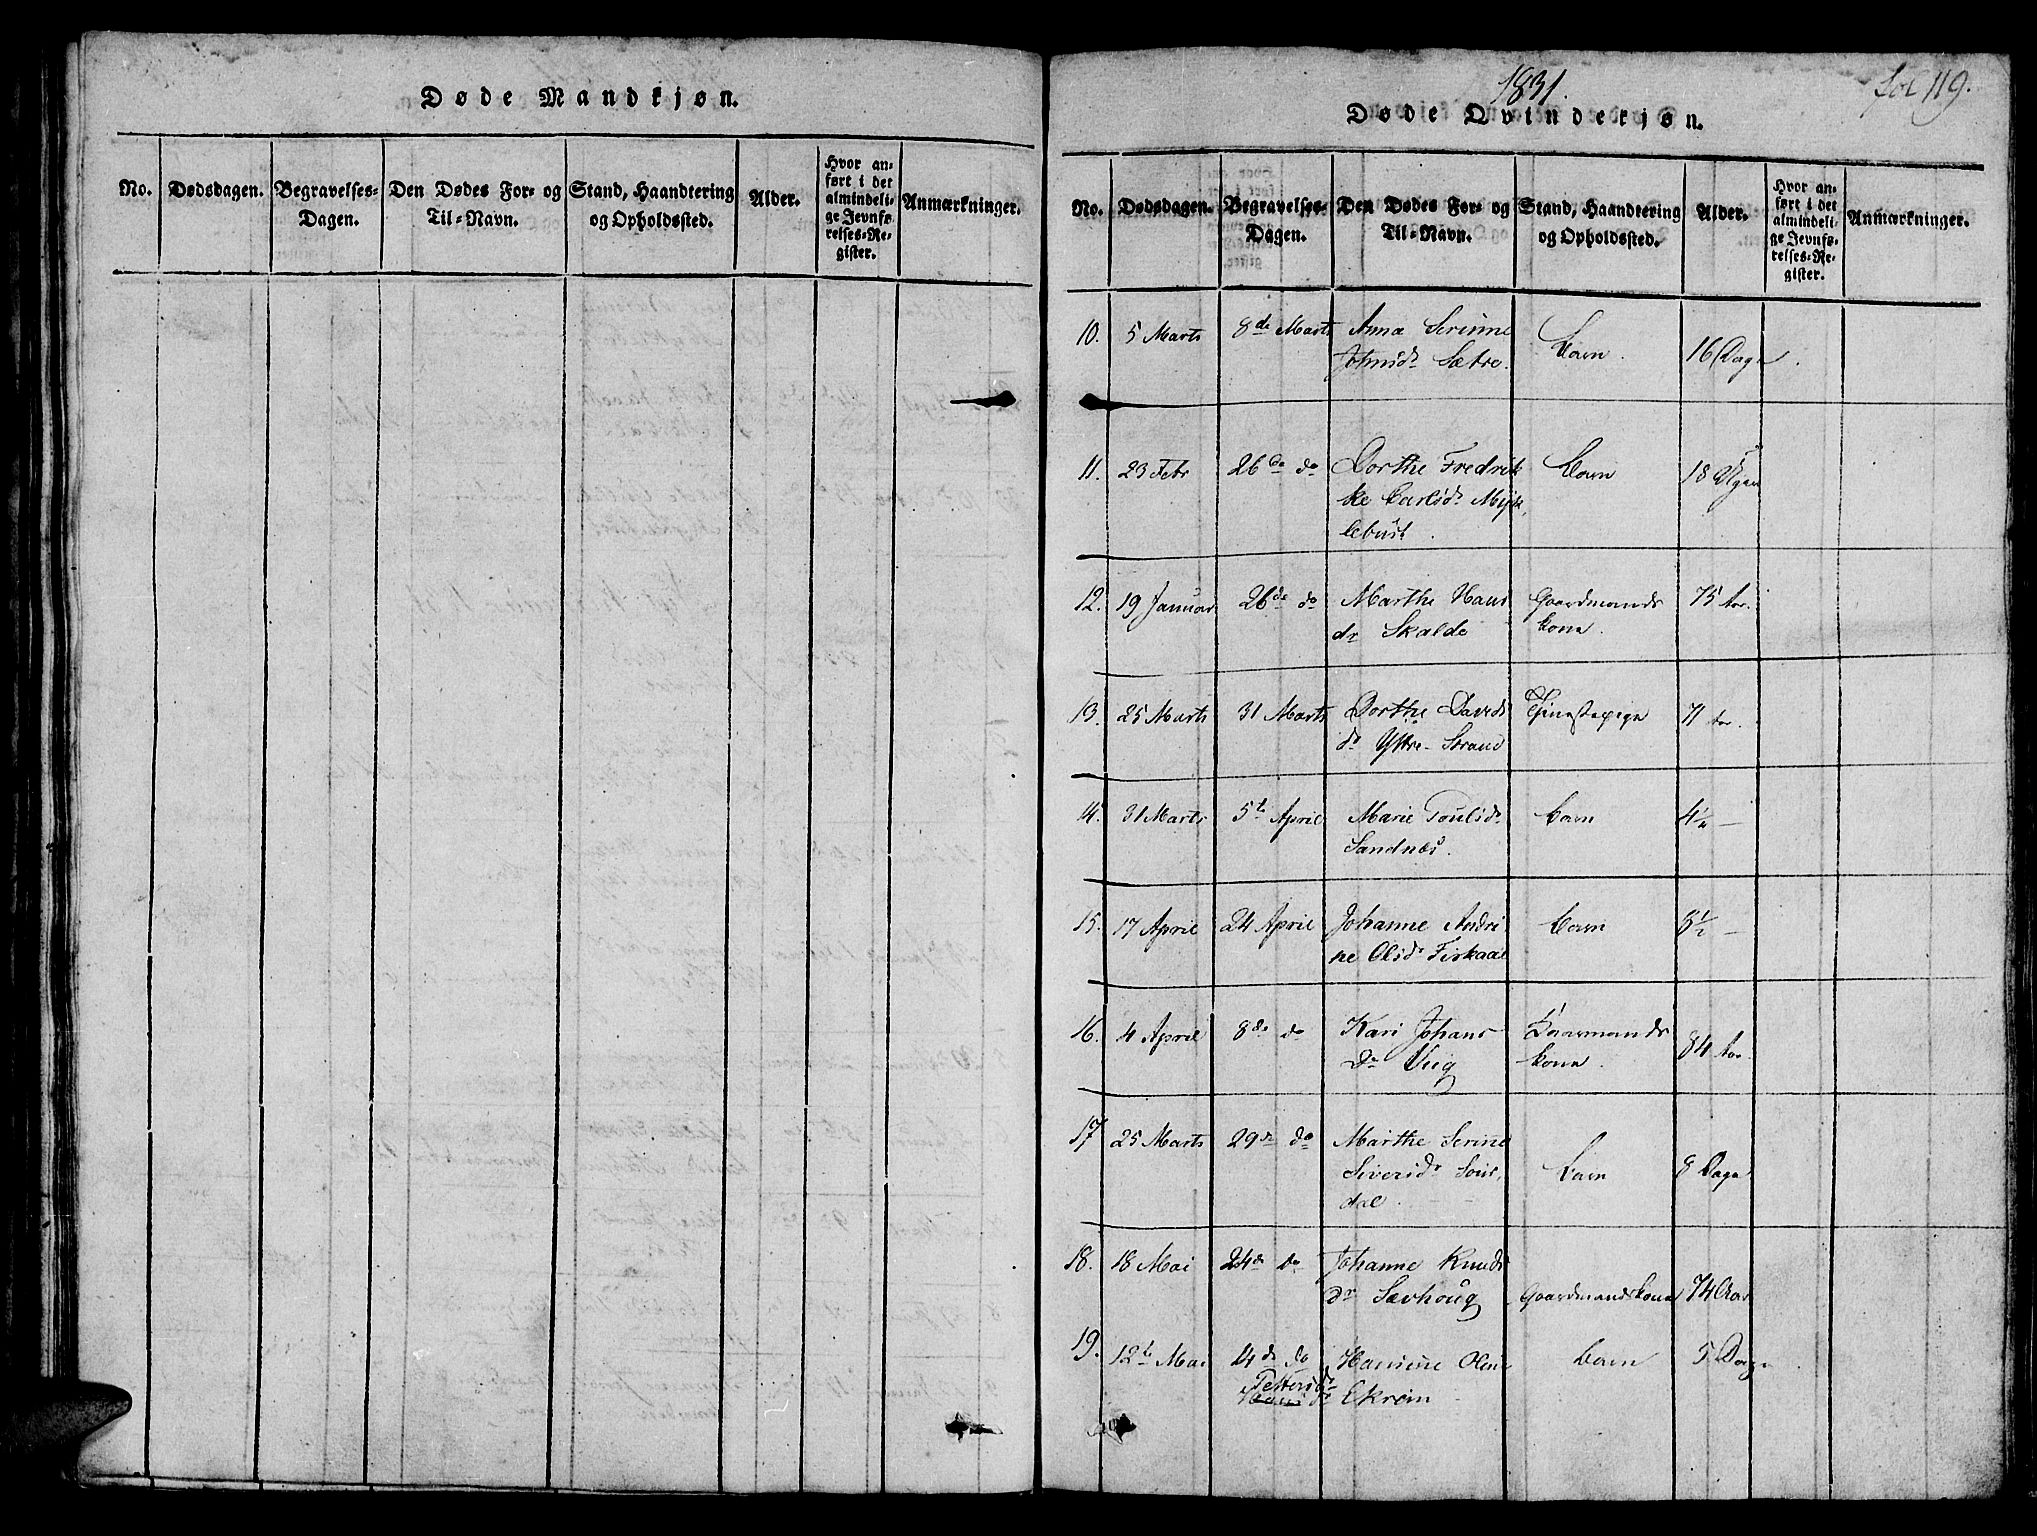 Døde Mandkjøn.
No. Dødsdagen. Begravelses-Dagen. Den Dødes For- og Til-Navn. Stand, Haandtering og Opholdssted. Alder. Hvor anført i det almindelige Jevnførelses-Register. Anmærkninger.
1831.
fol 119.
Døde Qvindekjøn.
No. Dødsdagen. Begravelses-Dagen. Den Dødes For- og Til-Navn. Stand, Haandtering og Opholdssted. Alder. Hvor anført i det almindelige Jevnførelses-Register. Anmærkninger.
10. 5 Marts 8de Marts Anna Serinne
Johnsdr Sætre. Barn. 16 Dage.
11. 23 Febr 26de do Dorthe Fredrik
ke Carlsdr Myk
lebust. Barn 18 Uger
12. 19 Januar 26de do Marthe Hans
dr Skalde Gaardmands
kone. 75 Aar.
13. 25 Marts 31 Marts Dorthe Davids
dr Yttre-Strand Tjenestepige 71 Aar.
14. 31 Marts 5te April Marie Poulsdr
Sandnæs. Barn 4½ —
15. 17 April 24 April Johanne Andri
ne Olsdr Fiskaae Barn 8½ —
16. 4 April 8de do Kari Johans
dr Viig Gaarmands
kone. 84 Aar.
17 25 Marts 29de do Marthe Serine
Siversdr
dal. Barn 8 Dage
18. 18 Mai 24de do Johanne Knuds
dr Sævhoug Gaardmandskone 74 Aar
19. 12te Mai 14de do Hansine Oline
Pettersdr
Ekrem Barn 5 Dage.